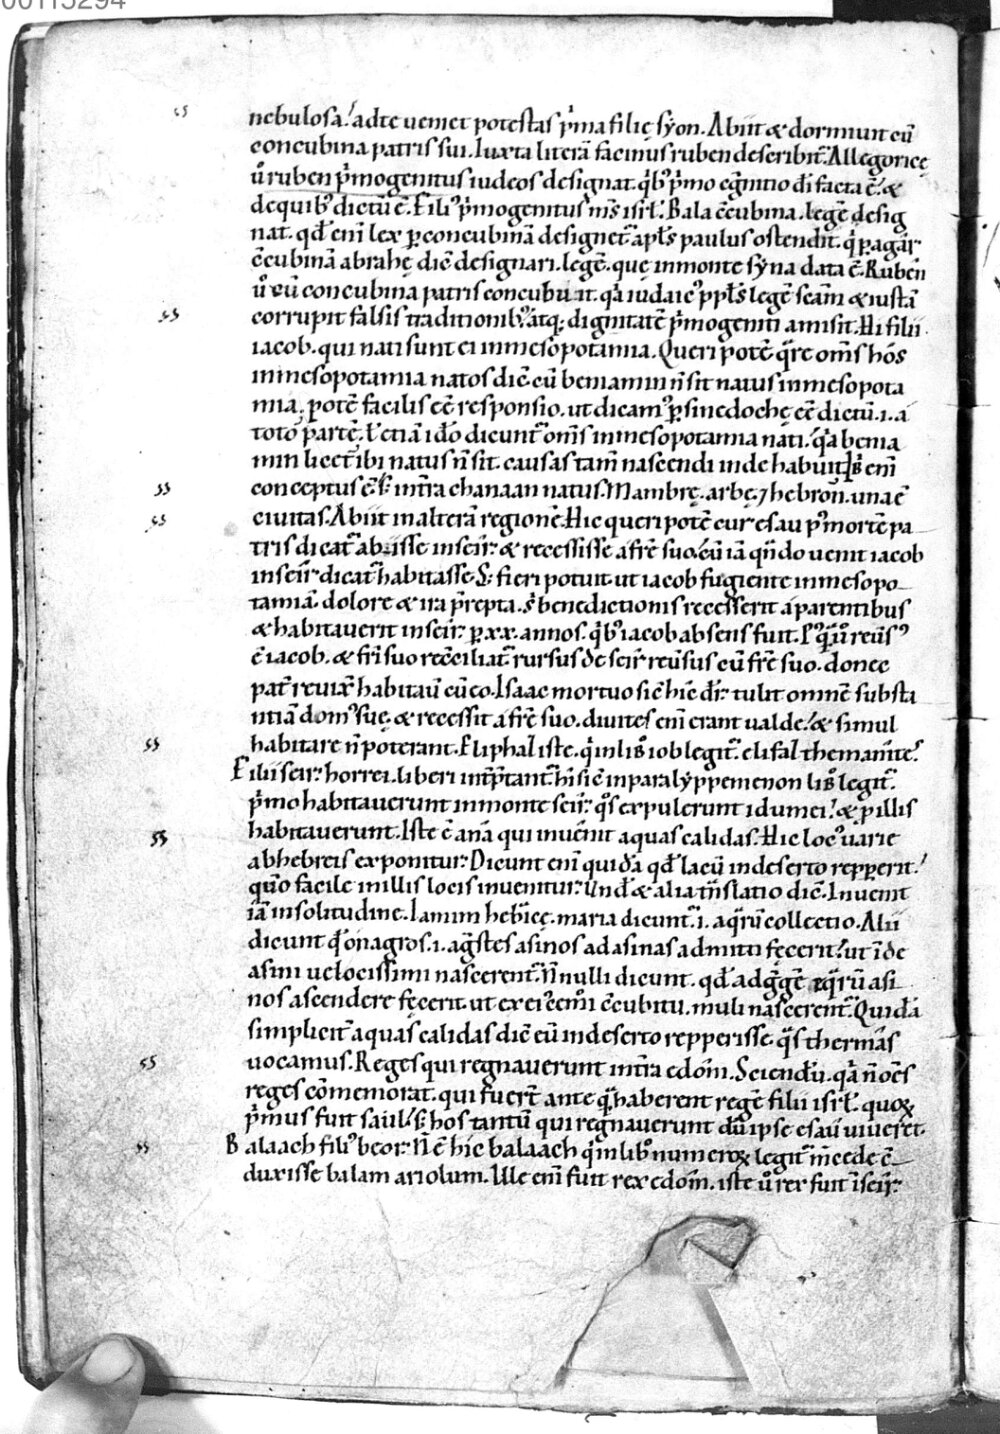 00115294
nebulosa! ad te veniet potestas p̾ma filię syon. Abiit & dormiuit cū
concubina patris sui. Iuxta literā facinus ruben describit᷑. Allegoricę
ů ruben p̾mogenitus iudeos designat. qb᷒ p̾mo cognitio di facta ē. &
de quib᷒ dictū ē. Fili᷒ p̾mogenitus m̄s isrl̄. Bala c̄cubina. legē desig
nat. qd̄ eni lex p̱ concubinā designet᷑ apl̄s paulus ostendit. q̾ p̱ agar̄
c̄cubinā abrahę dic̄ designari. legē. quę in monte syna data ē. Ruben
ů cū concubina patris concubuit. qa iudaic᷒ ppl̄s legē scām & iustā
corrupit falsis traditionib᷒. atq; dignitatē p̾mogeniti amisit. Hi filii
iacob. qui nati sunt ei in mesopotamia. Queri potē q̄re om̄s hos
in mesopotamia natos dic̄ cū beniamin n̄ sit natus in mesopota
mia. potē facilis eē responsio. ut dicam᷒ p̱ sinedochę eē dictū .i. a
toto partē. ł etiā ido dicunt᷑ om̄s in mesopotamia nati. qa benia
min licet ibi natus n̄ sit. causas tam̄ nascendi inde habuit. Ibi eni
conceptus ē. s; intra chanaan natus. Mambrę. arbę. ⁊ hebron. una ē
ciuitas. Abiit in alterā regionē. Hic queri potē cur esau p᷒ mortē pa
tris dicat᷑ abiisse in seir. & recessisse a fr̄e suo. cū iā qn̄do uenit iacob
in seir dicat᷑ habitasse. S; fieri potuit ut iacob fugiente in mesopo
tamiā. dolore & ira p̄repta. s̾ benedictionis recesserit a parentibus
& habitauerit in seir. p̱ .xx. annos. qb᷒ iacob absens fuit. P᷒ q̄ ů reūs᷒
ē iacob. & fr̄i suo rec̄ciliat᷑. rursus de seir reūsus cū fr̄e suo. donec
pat̄ reuix̄ habitaū cū eo. Isaac mortuo sic hic dr̄. tulit omnē substa
ntiā dom᷒ suę. & recessit a fr̄e suo. diuites eni erant ualde. & simul
habitare n̄ poterant. Eliphal iste. q̾ in lib̄o iob legit᷑. elifal themanite᷒
Filii seir. horrei. liberi int̄p̄tant᷑. hi sic in paralyppemenon lib̄o legit᷑.
p̾mo habitauerunt in monte seir. qos expulerunt idumei. & p̱ illis
habitauerunt. Iste ē ana qui inuenit aquas calidas. Hic loc᷒ uarie
ab hebreis exponitur. Dicunt eni quidā qd̄ lacū in deserto repperit.
quo facile in illis locis inuenitur. Und̄ & alia tn̄slatio dic̄. Inuenit
iā in solitudine. Iamim hebraicę. maria dicunt᷑ .i. aq̄rū collectio. Alii
dicunt qd̄ onagros .i. agrestes asinos ad asinas admitti fęcerit. ut īde
asini uelocissimi nascerent᷑. N̄nulli dicunt. qd̄ ad gregē eq̄rū asi
nos ascendere fęcerit ut ex ei᷒cemi c̄cubitu. muli nascerent᷑. Quidā
simplicit̄ aquas calidas dic̄ eū in deserto repperisse. qas thermas
uocamus. Reges qui regnauerunt in tra edom. Sciendū. qa n̄ oc̄s
reges cōmemorat. qui fuer̄t ante qā haberent regē filii isrl̄. quoꝝ
p̾mus fuit saul. S; hos tantū qui regnauerunt dū ipse esau uiueret.
Balaach fili᷒ beor. N̄ ē hic balaach q̾ in lib̄o numeroꝝ legit᷑ m̄cede c̄
duxisse balam ariolum. Ille eni fuit rex edom. iste ů rex fuit ī seir.